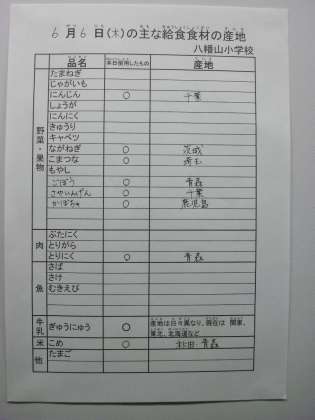 6月6日(木)の主な給食食材の産地
八幡山小学校
品名 本日使用したもの 産地
野菜・果物
たまねぎ
じゃがいも
にんじん ○ 千葉
しょうが
にんにく
きゅうり
キャベツ
ながねぎ ○ 茨城
こまつな ○ 埼玉
もやし
ごぼう ○ 青森
さやいんげん ○ 千葉
かぼちゃ ○ 鹿児島
肉
ぶたにく
とりがら
とりにく ○ 青森
魚
さば
さけ
むきえび
牛乳 ぎゅうにゅう ○ 産地は日々異なり、現在は 関東、東北、北海道など
米 こめ ○ 秋田・青森
他 たまご